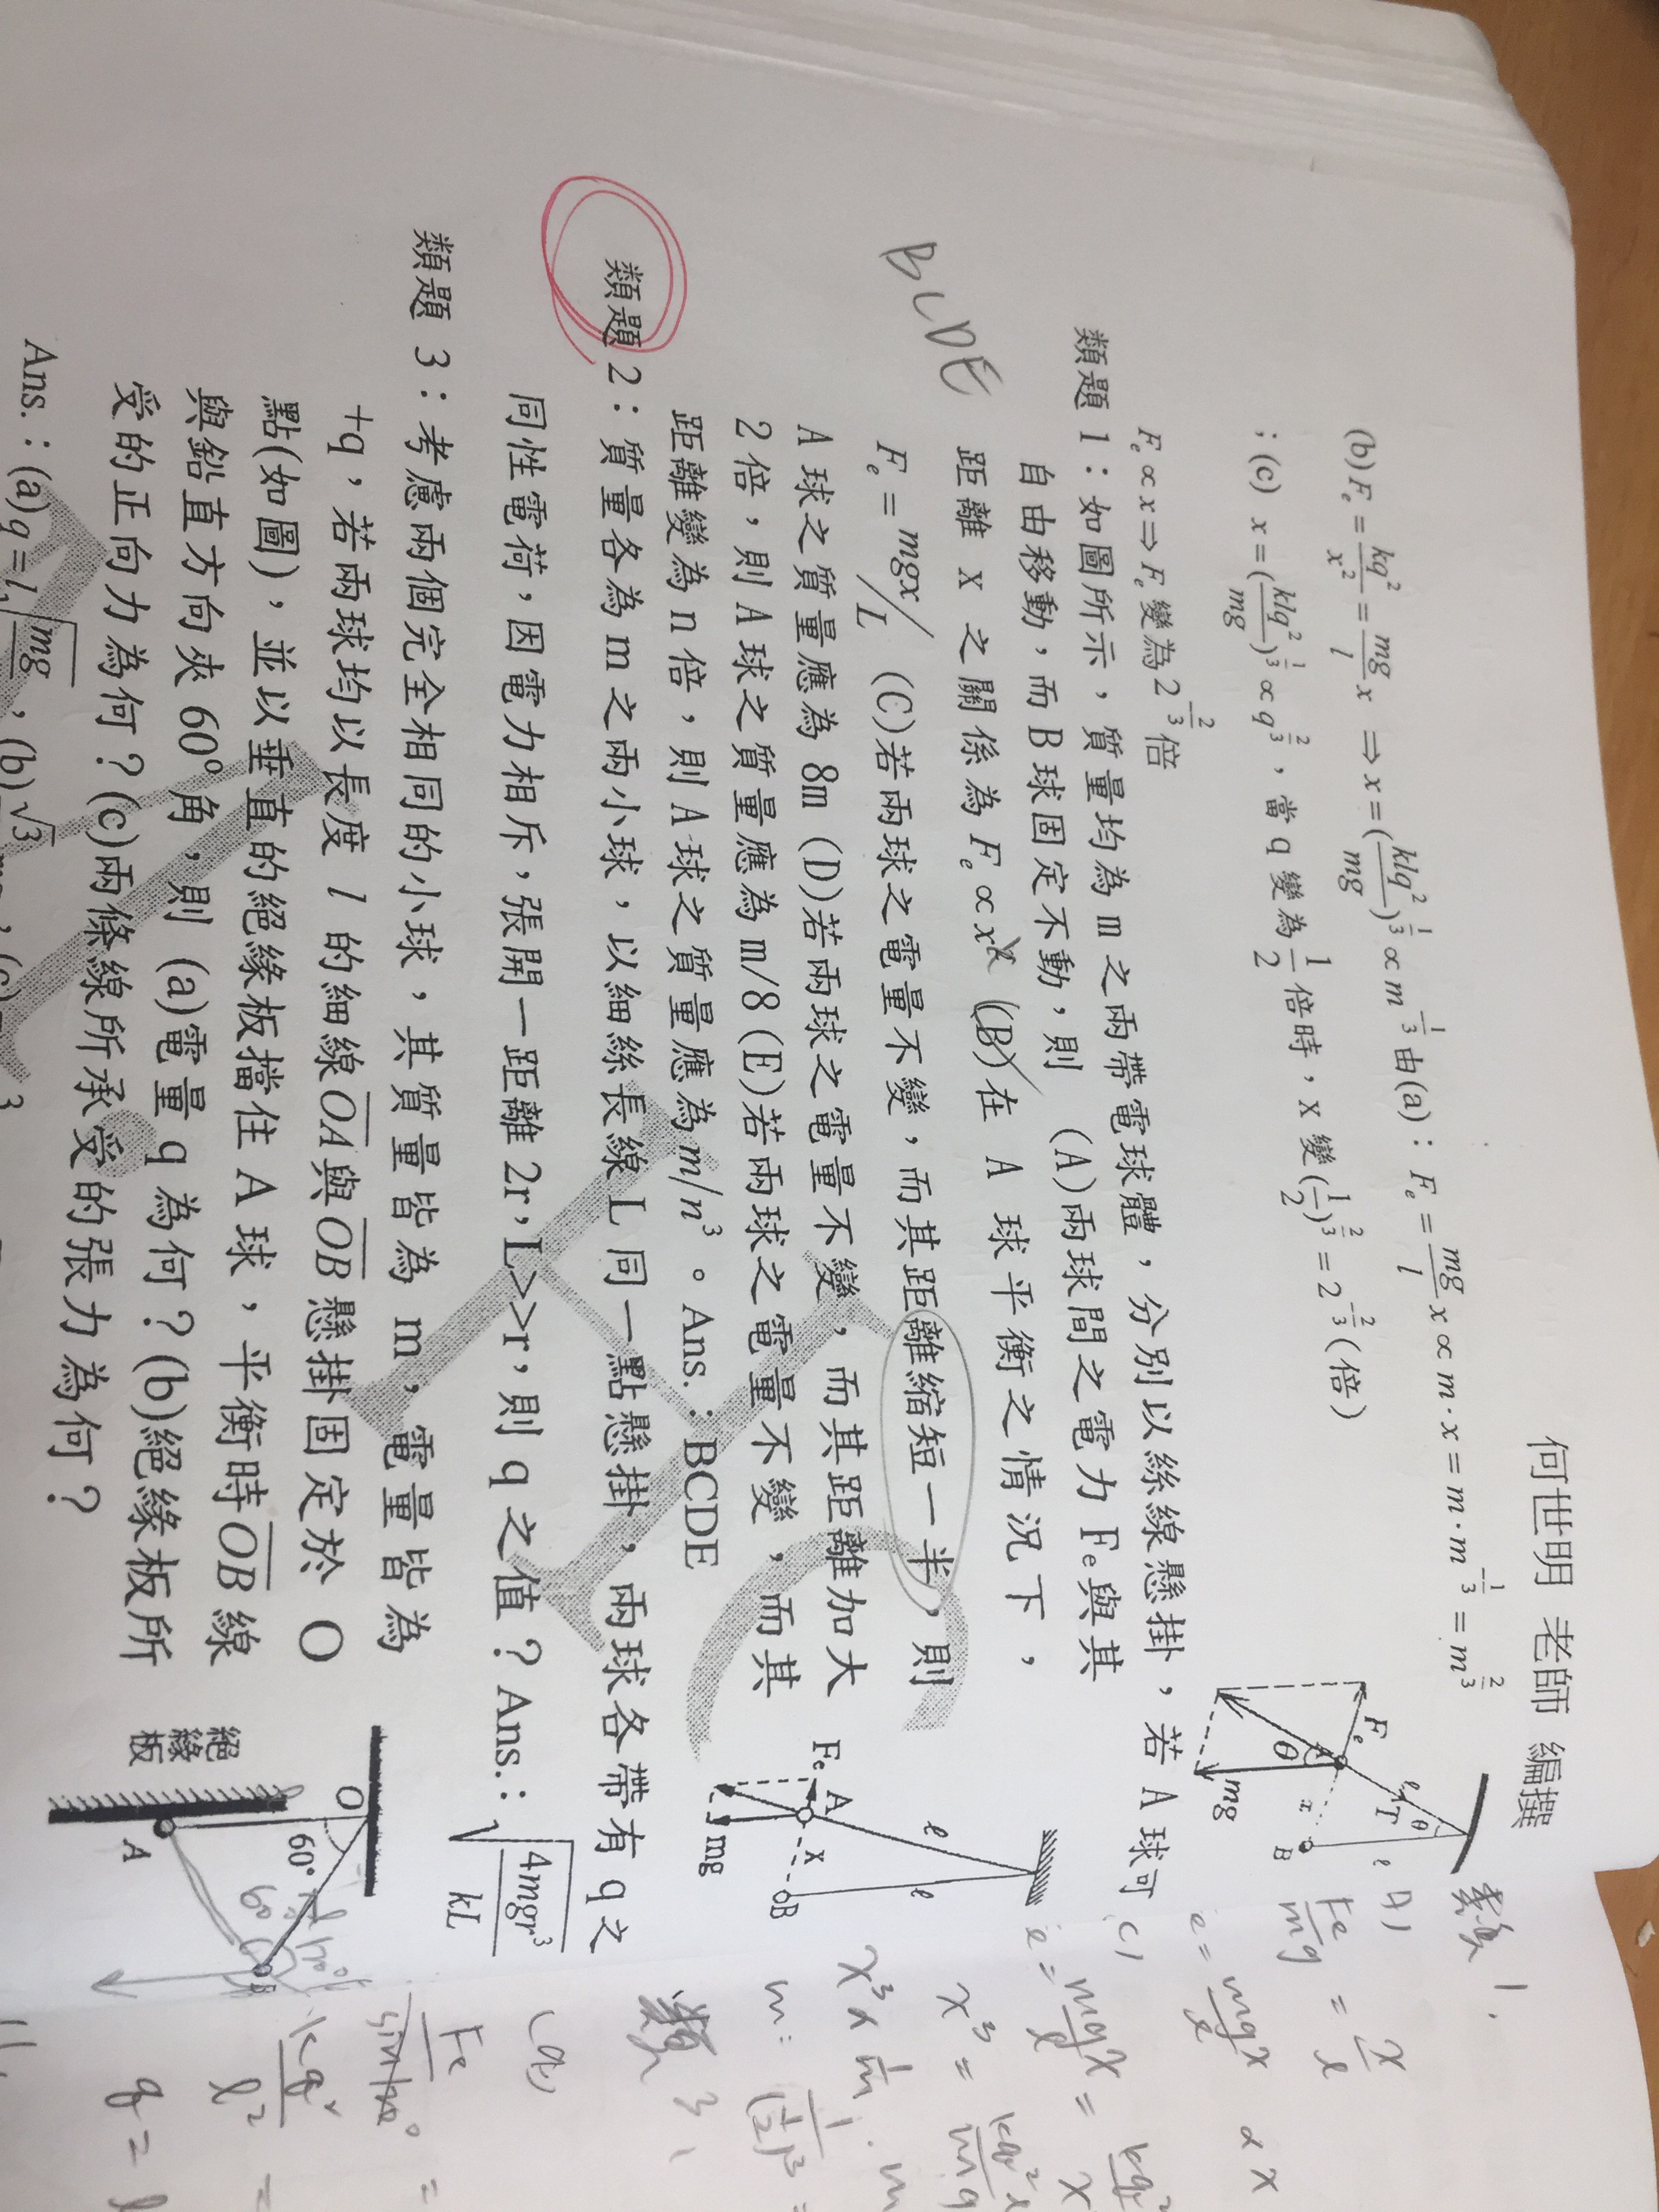 何世明 老師 編撰
(b) F_e = kq²/x² = mg/l x ⇒ x = (klq²/mg)^(1/3) ∝ m^(-1/3) 由(a)：F_e = mg/l x ∝ m·x = m·m^(-1/3) = m^(2/3)
；(c) x = (klq²/mg)^(1/3) ∝ q^(2/3)，當 q 變為 1/2 倍時，x 變 (1/2)^(2/3) = 2^(-2/3) (倍)
F_e ∝ x ⇒ F_e 變為 2^(-2/3) 倍
類題 1：如圖所示，質量均為 m 之兩帶電球體，分別以絲線懸掛，若 A 球可
自由移動，而 B 球固定不動，則 (A)兩球間之電力 Fe 與其
距離 X 之關係為 F_e ∝ x (B)在 A 球平衡之情況下，
F_e = mgx/L (C)若兩球之電量不變，而其距離縮短一半，則
A 球之質量應為 8m (D)若兩球之電量不變，而其距離加大
2 倍，則 A 球之質量應為 m/8 (E)若兩球之電量不變，而其
距離變為 n 倍，則 A 球之質量應為 m/n³。Ans.：BCDE
類題 2：質量各為 m 之兩小球，以細絲長線 L 同一點懸掛，兩球各帶有 q 之
同性電荷，因電力相斥，張開一距離 2r，L>>r，則 q 之值？Ans.：√(4mgr³/kL)
類題 3：考慮兩個完全相同的小球，其質量皆為 m，電量皆為
+q，若兩球均以長度 l 的細線 OA 與 OB 懸掛固定於 O
點(如圖)，並以垂直的絕緣板擋住 A 球，平衡時 OB 線
與鉛直方向夾 60° 角，則 (a)電量 q 為何？(b)絕緣板所
受的正向力為何？(c)兩條線所承受的張力為何？
BCDE
Fe
A
θ
mg
ℓ
T
θ
x
B
ℓ
Fe
A
mg
x
B
ℓ
ℓ
絕緣板
O
60°
A
B
60°
1.
Fe/mg = x/ℓ
(c)
x³ ∝ 1/m
3.
(a)